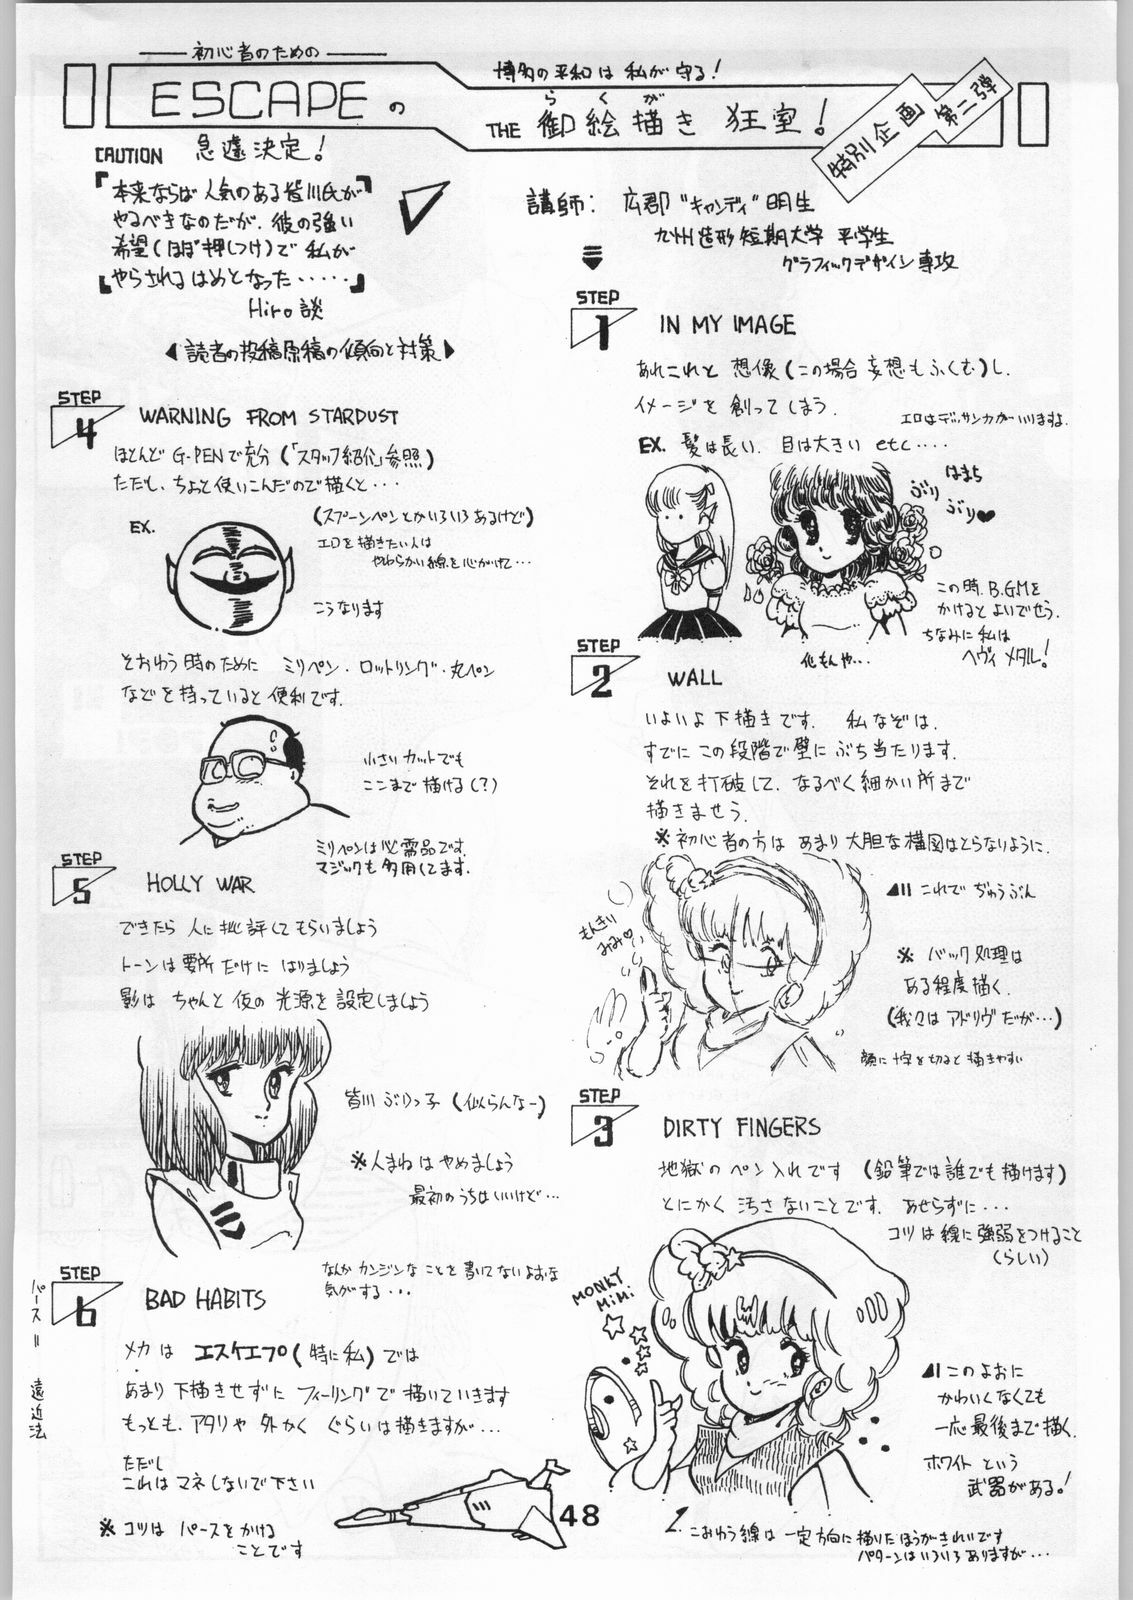 初心者のための
ESCAPEの
博多の平和は私が守る!
らくがき
THE 御絵描き 狂室!
特別企画
第二弾
CAUTION 急遽決定!
『本来ならば人気のある皆川氏が
やるべきなのだが、彼の強い
希望(ほぼ押しつけ)で私が
やらされるはめとなった・・・・・』
Hiro談
◀読者の投稿原稿の傾向と対策▶
講師: 広郡“キャンディ”明生
九州造形短期大学 平学生
グラフィックデザイン専攻
STEP
1
IN MY IMAGE
あれこれと 想像(この場合 妄想もふくむ)し、
イメージを 創ってしまう。
エロはデッサン力がいりますよ。
EX. 髪は長い、目は大きい etc・・・・
はまち
ぶり
ぶり♥
この時、B.G.Mを
かけるとよいでせう。
ちなみに私は
ヘヴィメタル!
化もんや・・・
STEP
2
WALL
いよいよ下描きです。 私なぞは、
すでにこの段階で壁にぶち当たります。
それを打破して、なるべく細かい所まで
描きませう。
※初心者の方は あまり大胆な構図はとらないように、
もんきい
みみ♡
これで じゅうぶん
※ バック処理は
ある程度描く。
(我々は アドリヴだが・・・)
顔に十字を切ると描きやすい
STEP
3
DIRTY FINGERS
地獄のペン入れです (鉛筆では誰でも描けます)
とにかく汚さないことです。 あせらずに・・・
コツは線に強弱をつけること
(らしい)
MONKY
MiMi
このよおに
かわいくなくても
一応最後まで描く。
ホワイトという
武器がある!
こおゆう線は一定方向に描いたほうがきれいです
パターンはいろいろありますが・・・
STEP
4
WARNING FROM STARDUST
ほとんど G-PENで充分(「スタッフ紹介」参照)
ただし、ちょっと使いこんだので描くと・・・
EX.
(スプーンペンとかいろいろあるけど)
エロを描きたい人は
やわらかい線を心がけて・・・
こうなります
とおゆう時のために ミリペン・ロットリング・丸ペン
などを持っていると便利です。
小さいカットでも
ここまで描ける(?)
ミリペンは必需品です。
マジックも多用してます。
STEP
5
HOLLY WAR
できたら 人に批評してもらいましょう
トーンは要所だけに はりましょう
影は ちゃんと仮の光源を設定しましょう
皆川ぶりっ子(似らんなー)
※人まねはやめましょう
最初のうちはいいけど・・・
なんか カンジンな ことを 書いてないよおな
気がする・・・
STEP
6
BAD HABITS
メカは エスケエプ(特に私)では
あまり下描きせずに フィーリングで描いていきます
もっとも、アタリや外かくぐらいは描きますが・・・
ただし
これは マネしないで下さい
※コツは パースをかける
ことです
パース=遠近法
48